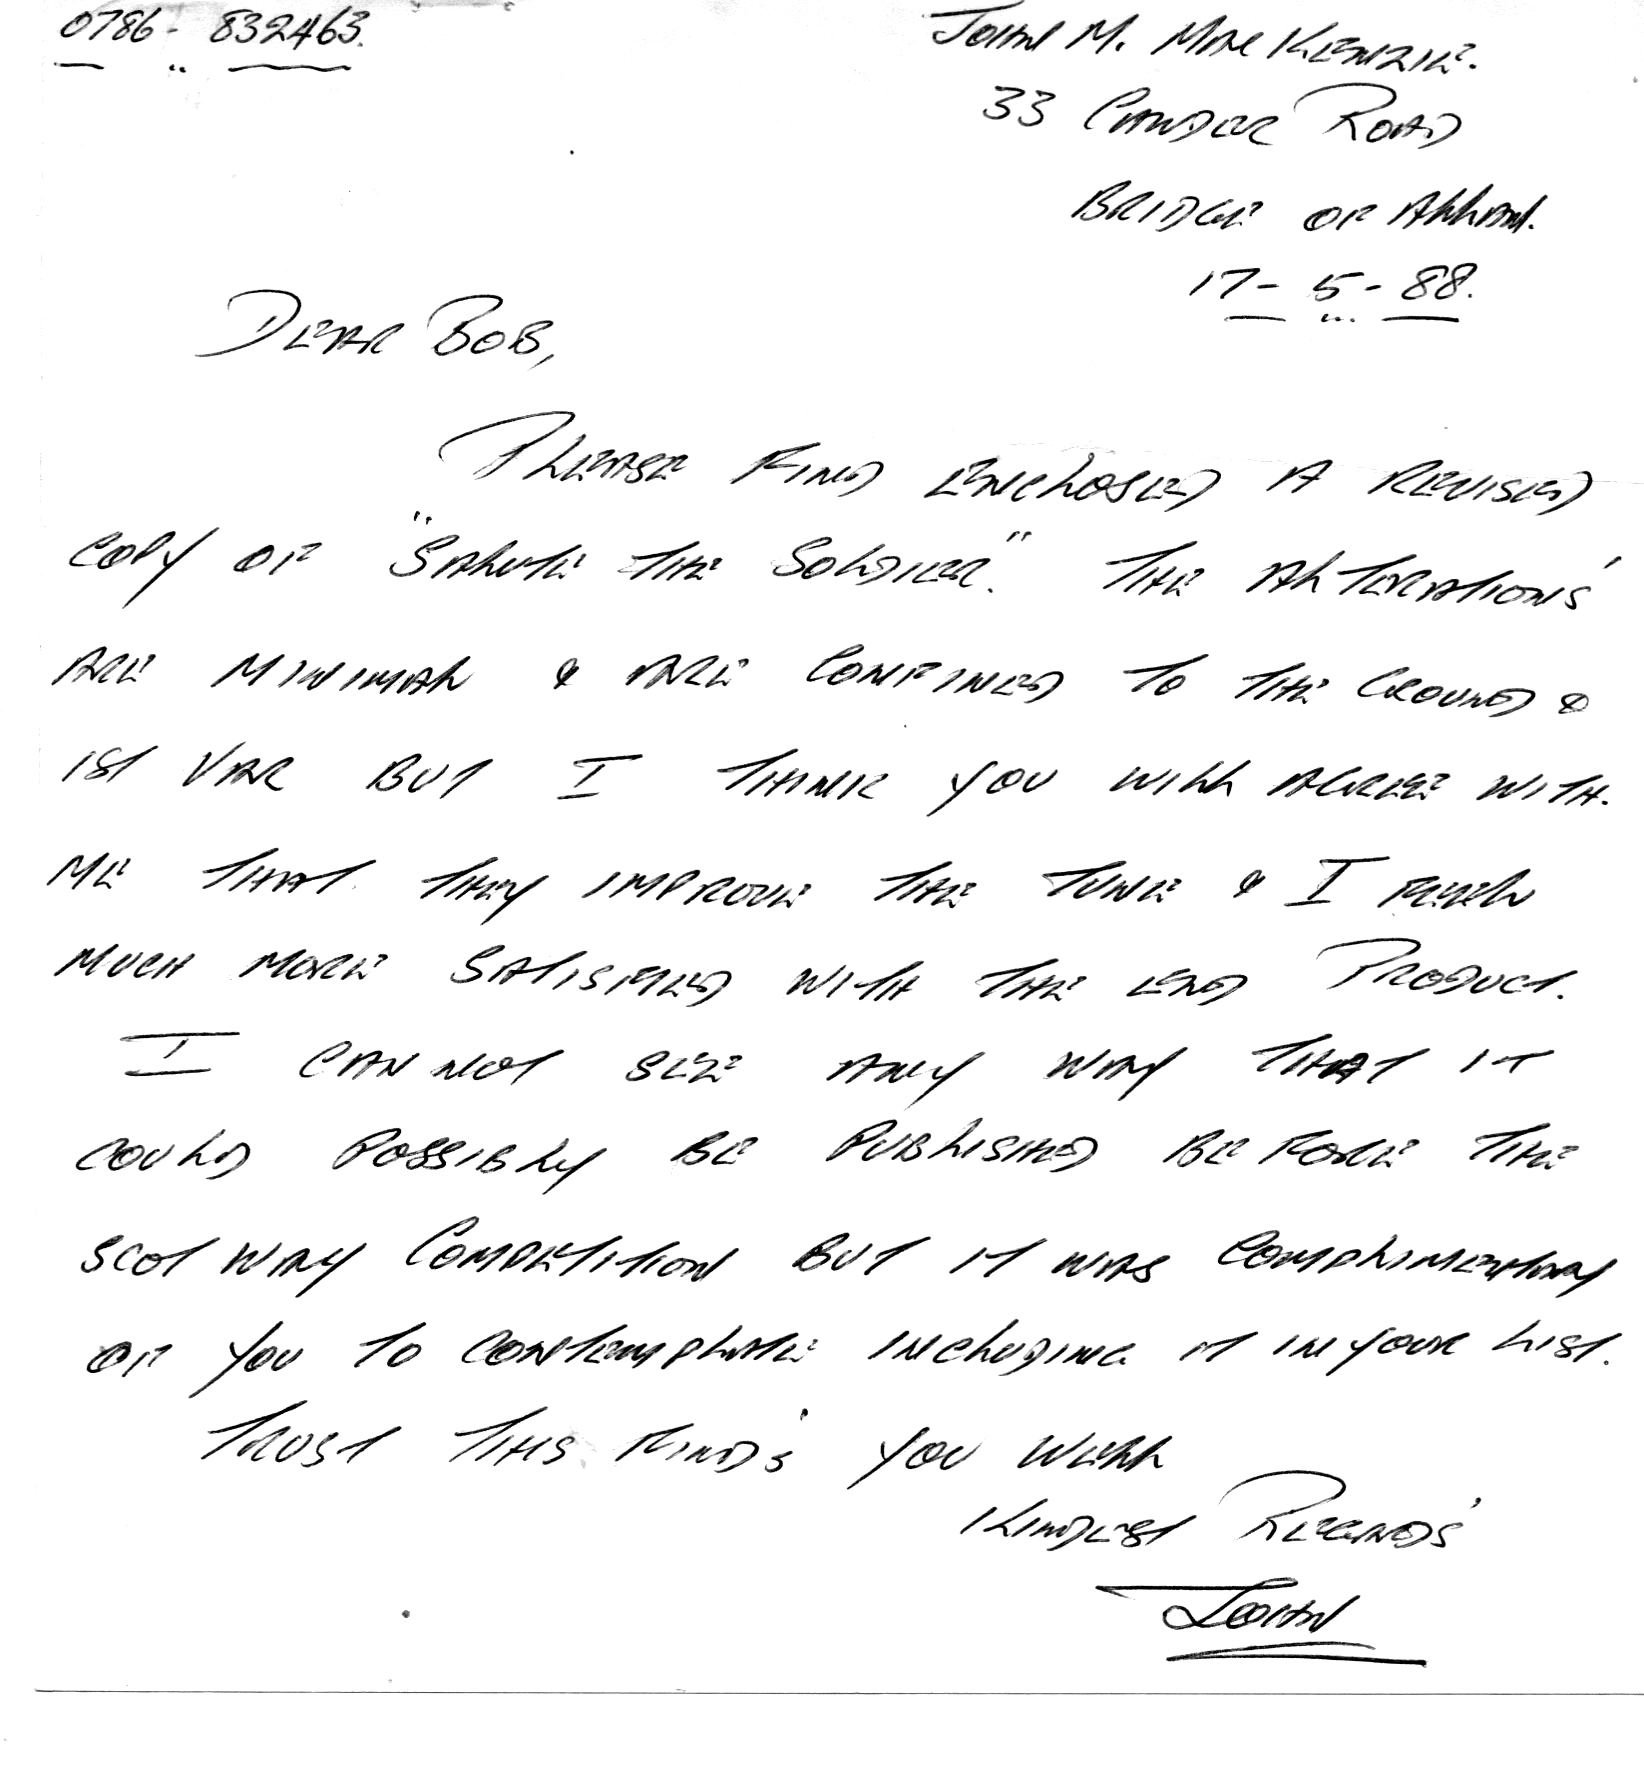 0786 - 832463.
JOHN M. MACKENZIE.
33 CAWDER ROAD
BRIDGE OF ALLAN.
17 - 5 - 88.
DEAR BOB,
PLEASE FIND ENCLOSED A REVISED
COPY OF "SALUTE THE SOLDIER." THE ALTERATION'S
ARE MINIMAL & ARE CONFINED TO THE GROUND &
1ST VAR BUT I THINK YOU WILL AGREE WITH
ME THAT THEY IMPROVE THE TUNE & I FEEL
MUCH MORE SATISFIED WITH THE END PRODUCT.
I CAN NOT SEE ANY WAY THAT IT
COULD POSSIBLY BE PUBLISHED BEFORE THE
SCOTWAY COMPETITION BUT IT WAS COMPLIMENTARY
OF YOU TO CONTEMPLATE INCLUDING IT IN YOUR LIST.
TRUST THIS FIND'S YOU WELL
KINDEST REGARD'S
JOHN